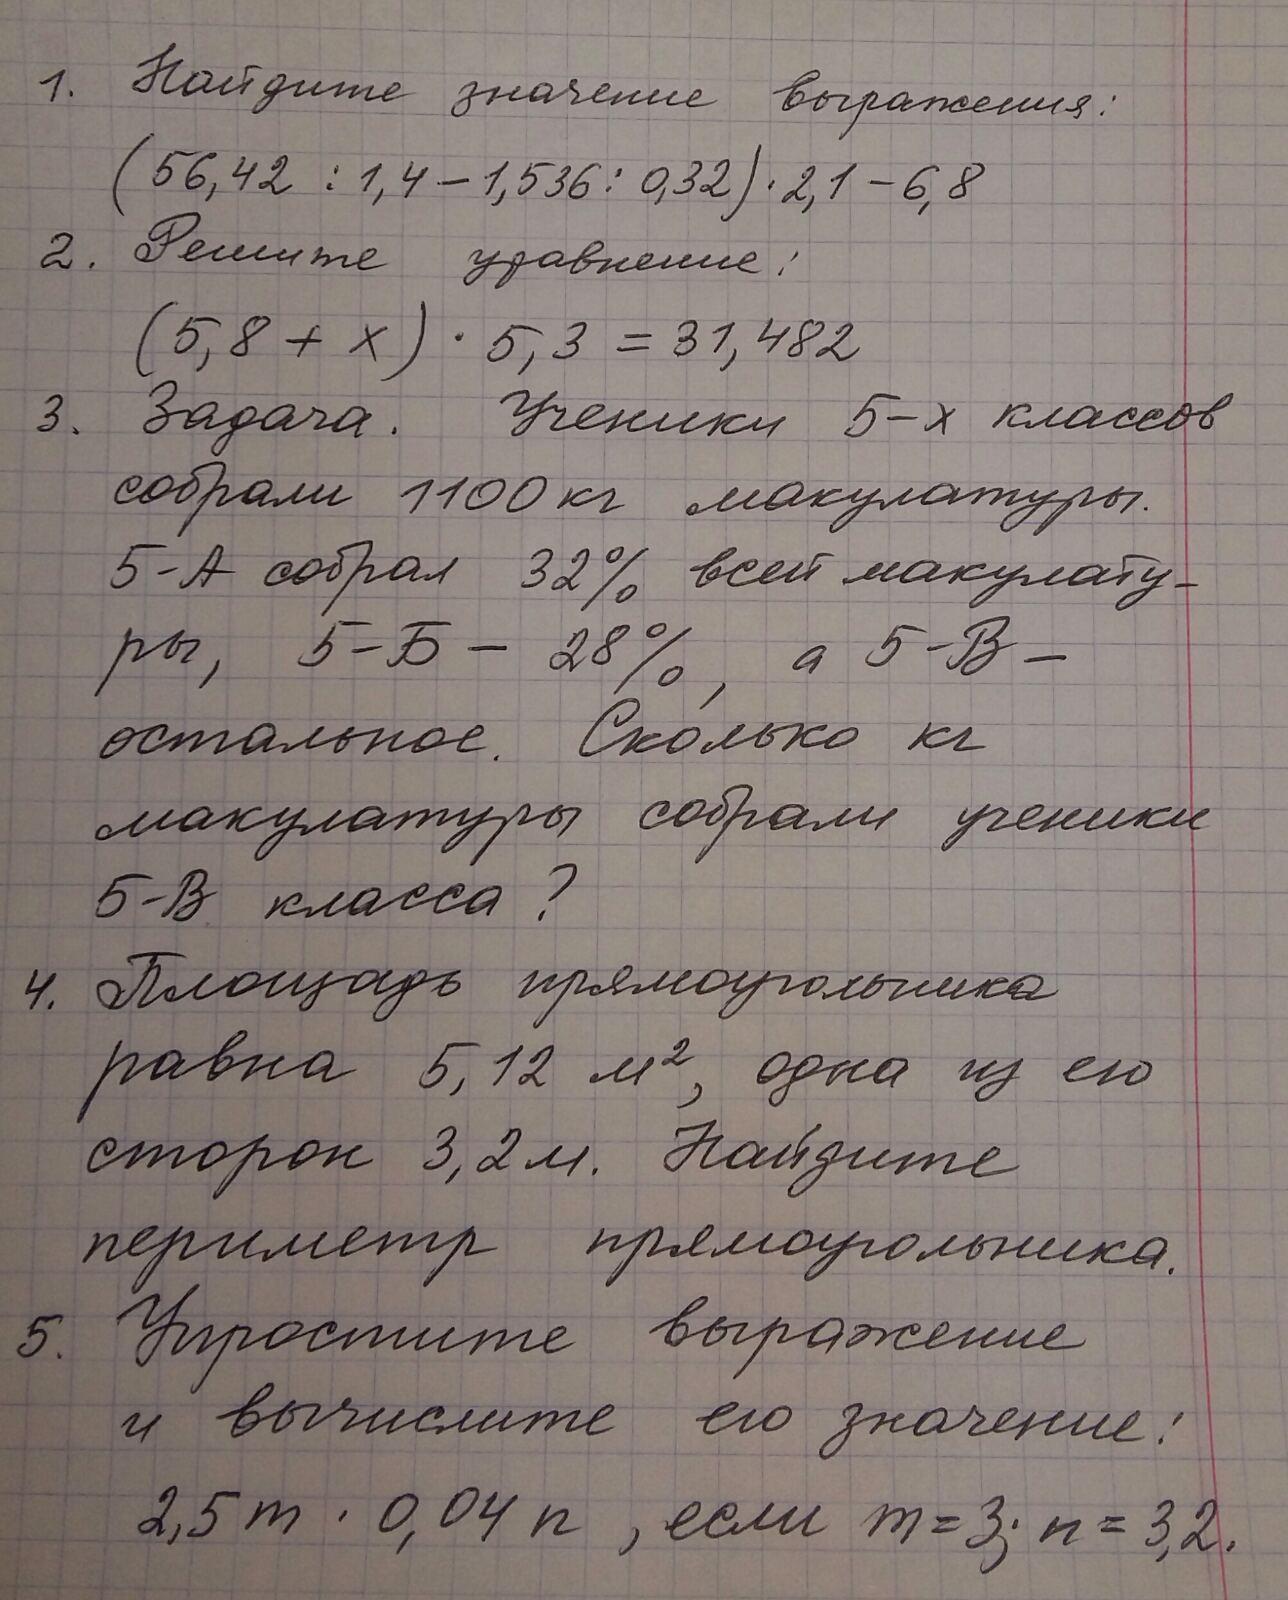 1. Найдите значение выражения:
(56,42 : 1,4 – 1,536 : 0,32) · 2,1 – 6,8
2. Решите уравнение:
(5,8 + x) · 5,3 = 31,482
3. Задача. Ученики 5-х классов
собрали 1100 кг макулатуры.
5-А собрал 32% всей макулату-
ры, 5-Б – 28%, а 5-В –
остальное. Сколько кг
макулатуры собрали ученики
5-В класса?
4. Площадь прямоугольника
равна 5,12 м², одна из его
сторон 3,2 м. Найдите
периметр прямоугольника.
5. Упростите выражение
и вычислите его значение:
2,5 m · 0,04 n, если m = 3; n = 3,2.